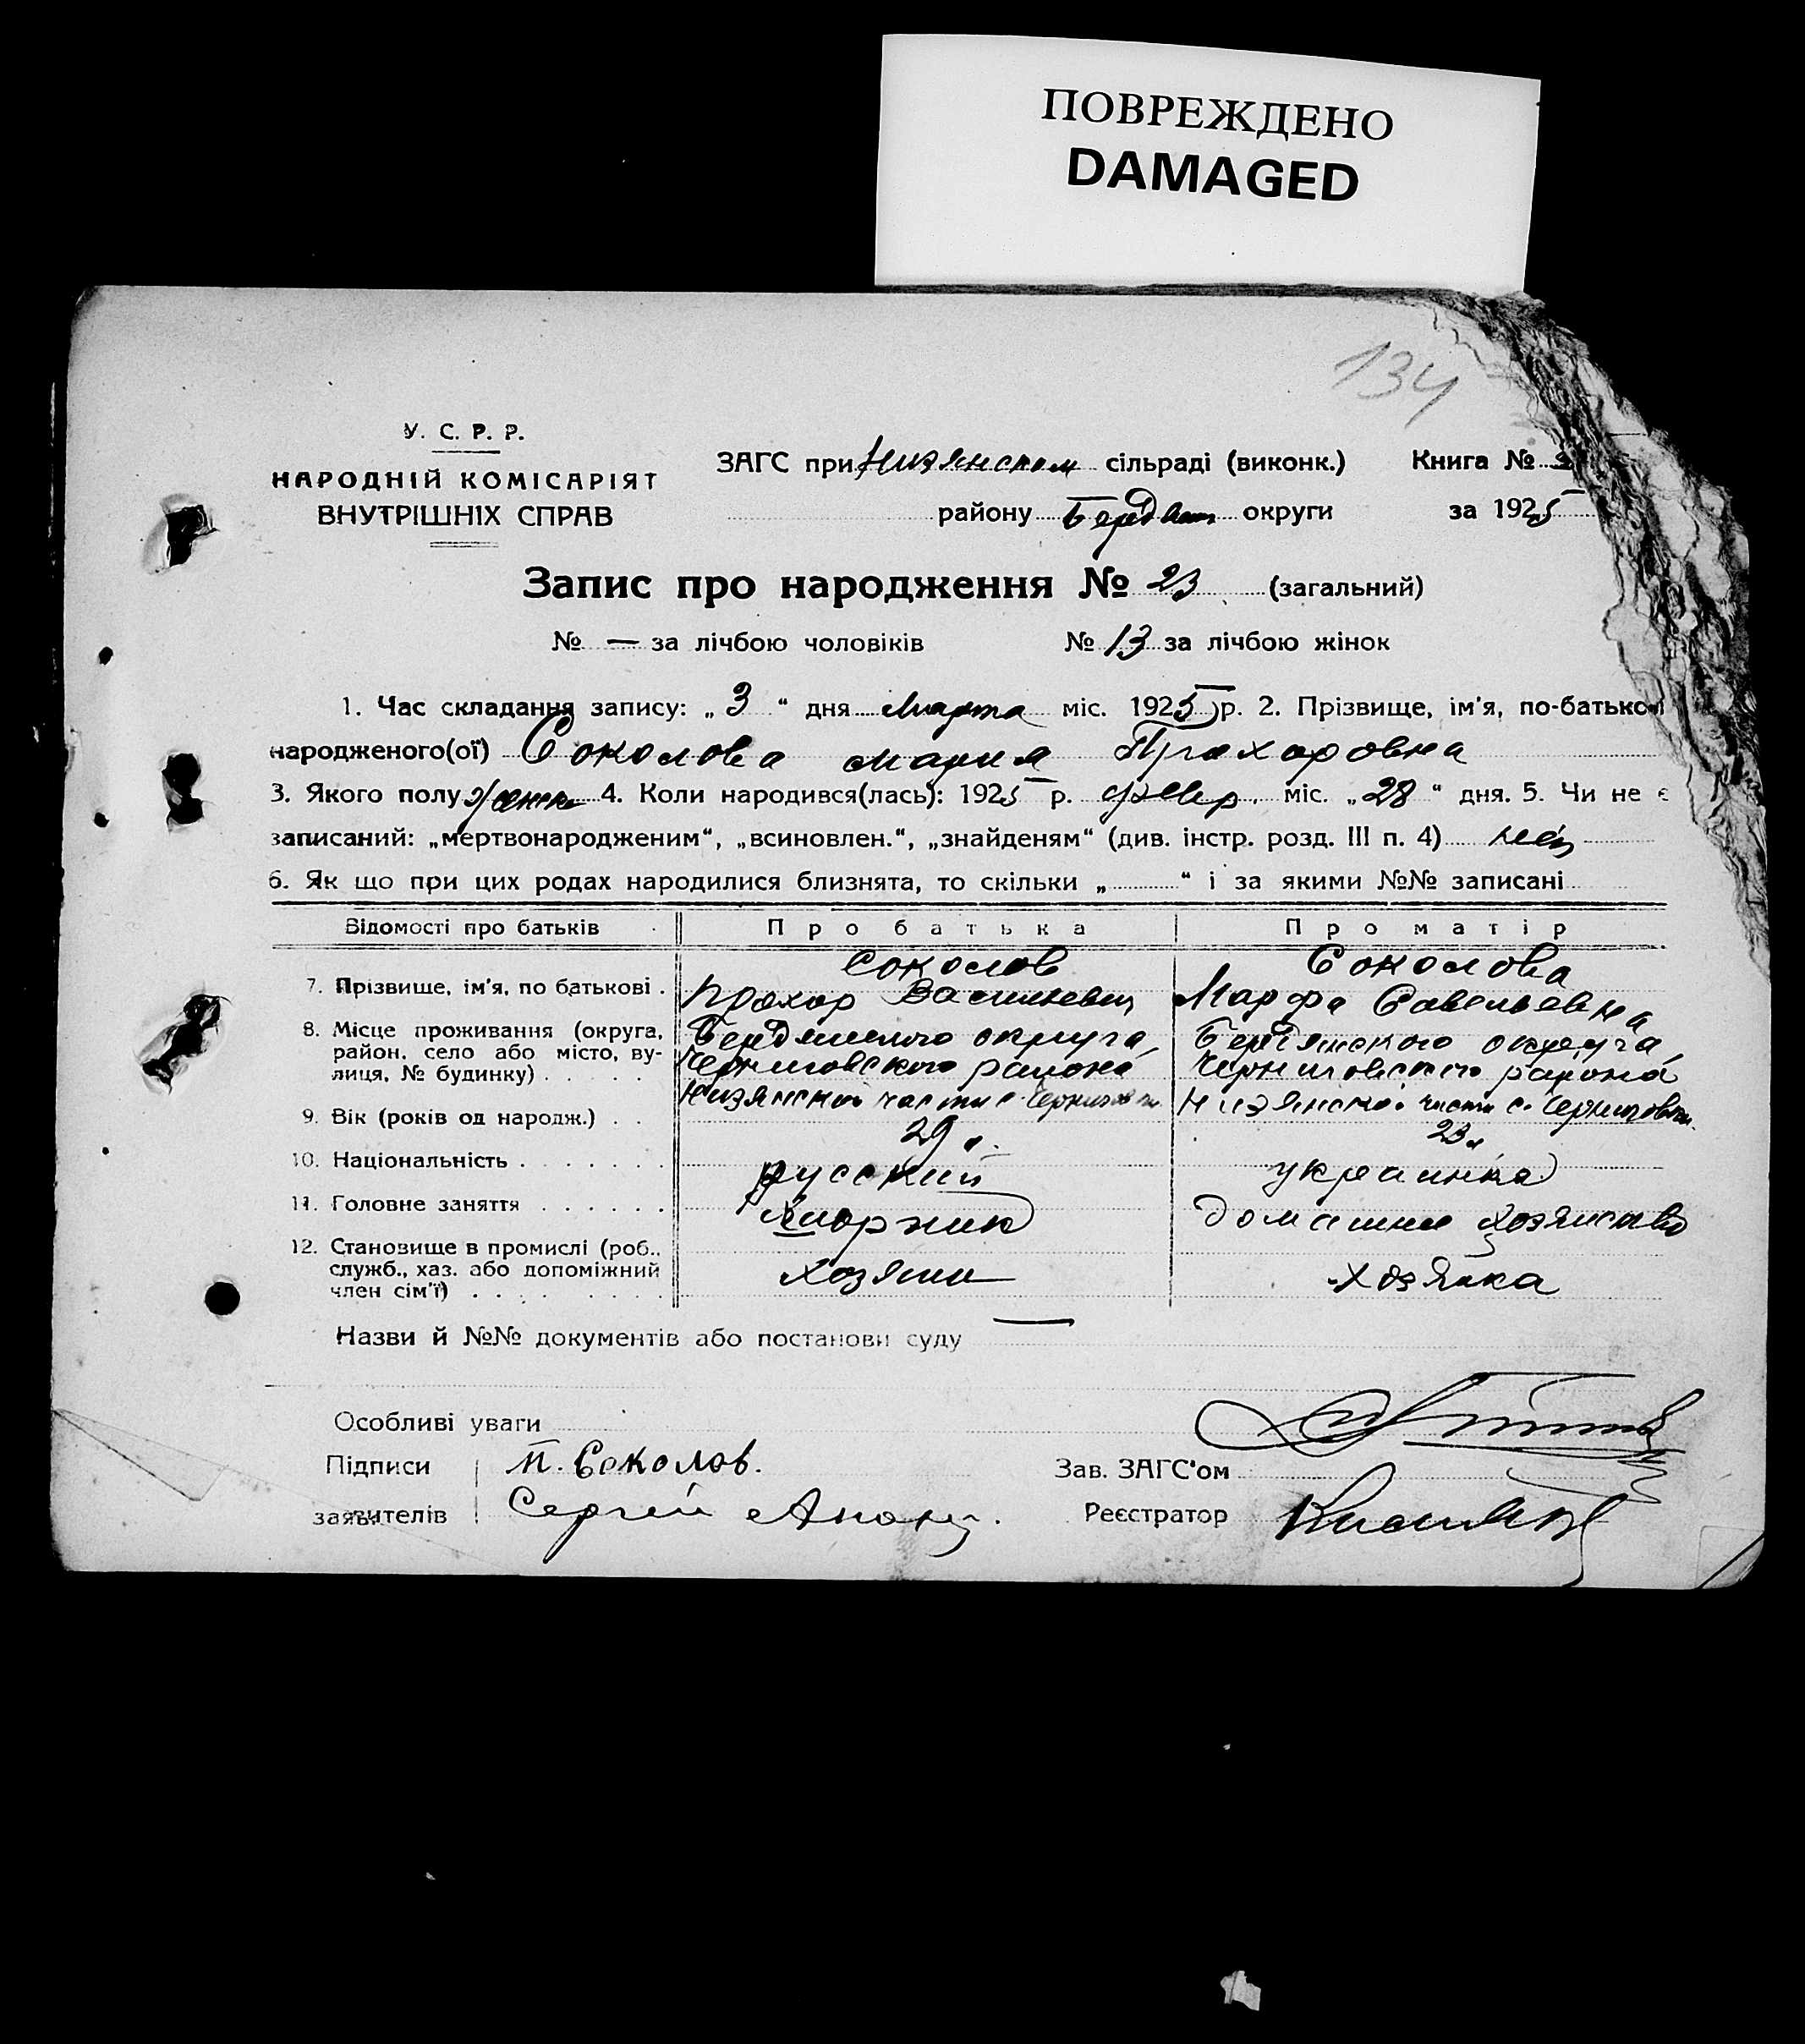 ПОВРЕЖДЕНО
DAMAGED
134
У. С. Р. Р.
НАРОДНІЙ КОМІСАРІЯТ
ВНУТРІШНІХ СПРАВ
ЗАГС при Низянском сільраді (виконк.) Книга №
району Бердян округи за 1925
Запис про народження № 23 (загальний)
№ — за лічбою чоловіків № 13 за лічбою жінок
1. Час складання запису: „ 3 “ дня Марта міс. 1925 р. 2. Прізвище, ім'я, по-батькові
народженого(ої) Соколова Мария Прохоровна
3. Якого полу женск 4. Коли народився(лась): 1925 р. февр. міс. „28“ дня. 5. Чи не є
записаний: „мертвонародженим“, „всиновлен.“, „знайденям“ (див. інстр. розд. III п. 4) нет
6. Як що при цих родах народилися близнята, то скільки „ “ і за якими №№ записані
Відомості про батьків Про батька Про матір
Соколов Соколова
7. Прізвище, ім'я, по батькові . Прохор Васильевич Марфа Савельевна
8. Місце проживання (округа, район, село або місто, вулиця, № будинку) . . . . .
Бердянского округа Бердянского округа
Черниговского района Черниговского района
Низянской части с. Черниговки Низянской части с. Черниговки
9. Вік (років од народж.) . . 29 л. 23 л
10. Національність . . . . . . . русский украинка
11. Головне заняття . . . . . . домашнее хозяйство
12. Становище в промислі (роб., служб., хаз. або допоміжний член сім'ї) . . . . . . . . хозяин хозяйка
Назви й №№ документів або постанови суду —
Особливі уваги
Підписи П. Соколов. Зав. ЗАГС'ом
заявителів Сергей Реєстратор